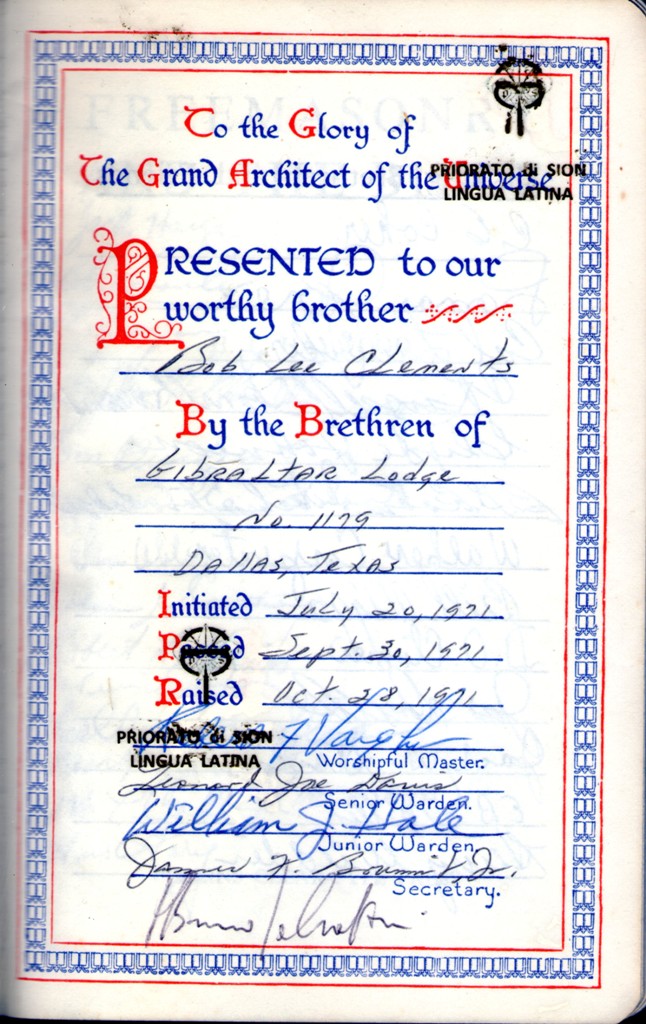 To the Glory of
The Grand Architect of the Universe
PRIORATO di SION
LINGUA LATINA
PRESENTED to our
worthy brother
Bob Lee Clements
By the Brethren of
Gibraltar Lodge
No. 1179
Dallas, Texas
Initiated July 20, 1971
Passed Sept. 30, 1971
Raised Oct. 28, 1971
F Vaughn
PRIORATO di SION
Worshipful Master.
LINGUA LATINA
Leonard Joe Davis
Senior Warden.
William J. Hale
Junior Warden
Jr.
Secretary.